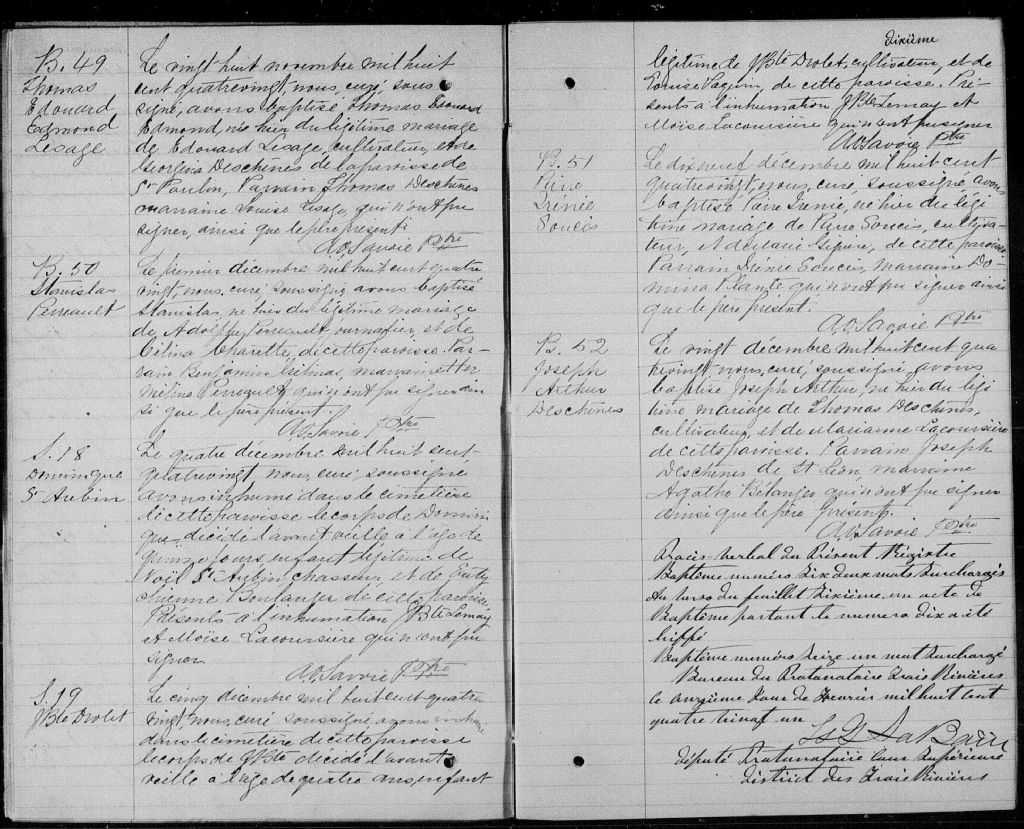 B. 49
Thomas
Edouard
Edmond
Lesage
Le vingt huit novembre mil huit
cent quatrevingt, nous, curé, sous
signé, avons baptisé Thomas Edouard
Edmond, né hier du légitime mariage
de Edouard Lesage, cultivateur, et de
Georgina Deschênes de la paroisse de
St Paulin, Parrain Thomas Deschênes
marraine Louise Lesage, qui n'ont pu
signer, ainsi que le père présent.
A.O. Savoie Ptre
B. 50
Stanislas
Perreault
Le premier décembre mil huit cent quatre
vingt, nous, curé soussigné avons baptisé
Stanislas, né hier du légitime mariage
de Adolphe Perreault, journalier, et de
Célina Charette, de cette paroisse. Par-
rain Benjamin Gélinas, marraine
Mélina Perreault, qui n'ont pu signer ain
si que le père présent.
A.O. Savoie, Ptre
S. 18
Dominique
St Aubin
Le quatre décembre mil huit cent-
quatrevingt, nous, curé, soussigné
avons inhumé dans le cimetière
de cette paroisse le corps de Domini
que décédé l'avant veille à l'âge de
quinze jours, enfant légitime de
Noël St Aubin chasseur, et de
Boulanger de cette paroisse,
Présents à l'inhumation JBte Lemay
et Moïse Lacoursière qui n'ont pu
signer.
A.O. Savoie Ptre
S. 19
JBte Drolet
Le cinq décembre mil huit cent quatre
vingt, nous, curé soussigné avons inhumé
dans le cimetière de cette paroisse
le corps de JBte décédé l'avant
veille à l'âge de quatre ans, enfant
dixième
légitime de JBte Drolet, cultivateur, et de
Louise Paquin, de cette paroisse. Pré-
sents à l'inhumation JBte Lemay et
Moïse Lacoursière qui n'ont pu signer
A.O. Savoie Ptre
B. 51
Pierre
Irénée
Soucis
Le dix neuf décembre mil huit cent
quatrevingt, nous, curé, soussigné avons
baptisé Pierre Irénée, né hier du légi
time mariage de Pierre Soucis, cultiva-
teur, et de, de cette paroisse.
Parrain Irénée Soucis, marraine Do-
mina Plante qui n'ont pu signer ainsi
que le père présent.
A.O. Savoie Ptre
B. 52
Joseph
Arthur
Deschênes
Le vingt décembre mil huit cent qua
trevingt, nous, curé, soussigné avons
baptisé Joseph Arthur, né hier du légi
time mariage de Thomas Deschênes,
cultivateur, et de Marianne Lacoursière
de cette paroisse. Parrain Joseph
Deschênes de St Léon, marraine
Agathe Bélanger qui n'ont pu signer
ainsi que le père présent.
A.O. Savoie Ptre
Procès verbal du Présent Régistre
Baptême numéro dix deux mots surchargés
Au verso du feuillet dixième, un acte de
Baptême portant le numero dix a été
biffé
Baptême numéro seize un mot surchargé
Bureau du Protonotaire Trois Rivières
ce onzième jour de Février mil huit cent
quatre vingt un
LaBarre
député Protonotaire Cour Supérieure
district des Trois Rivières